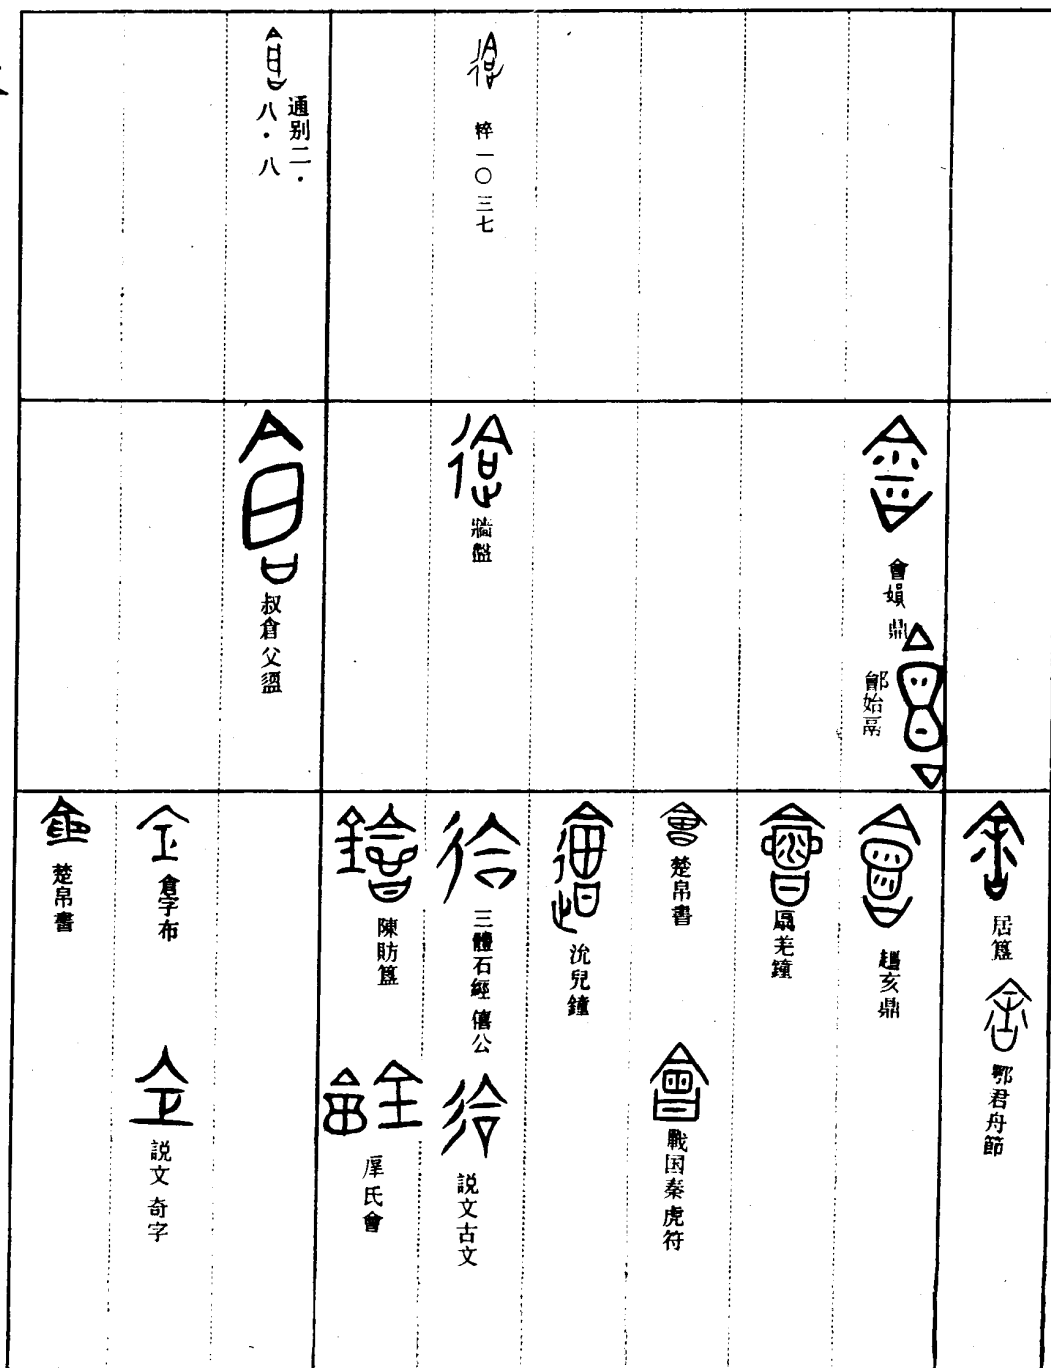 粹一〇三七
通别二·
八·八
會娟鼎
鄶始鬲
牆盤
叔倉父盨
居簋
鄂君舟節
趞亥鼎
驫羌鐘
楚帛書
戰国秦虎符
沇兒鐘
三體石經僖公
説文古文
陳肪簋
㕓氏會
倉字布
説文奇字
楚帛書